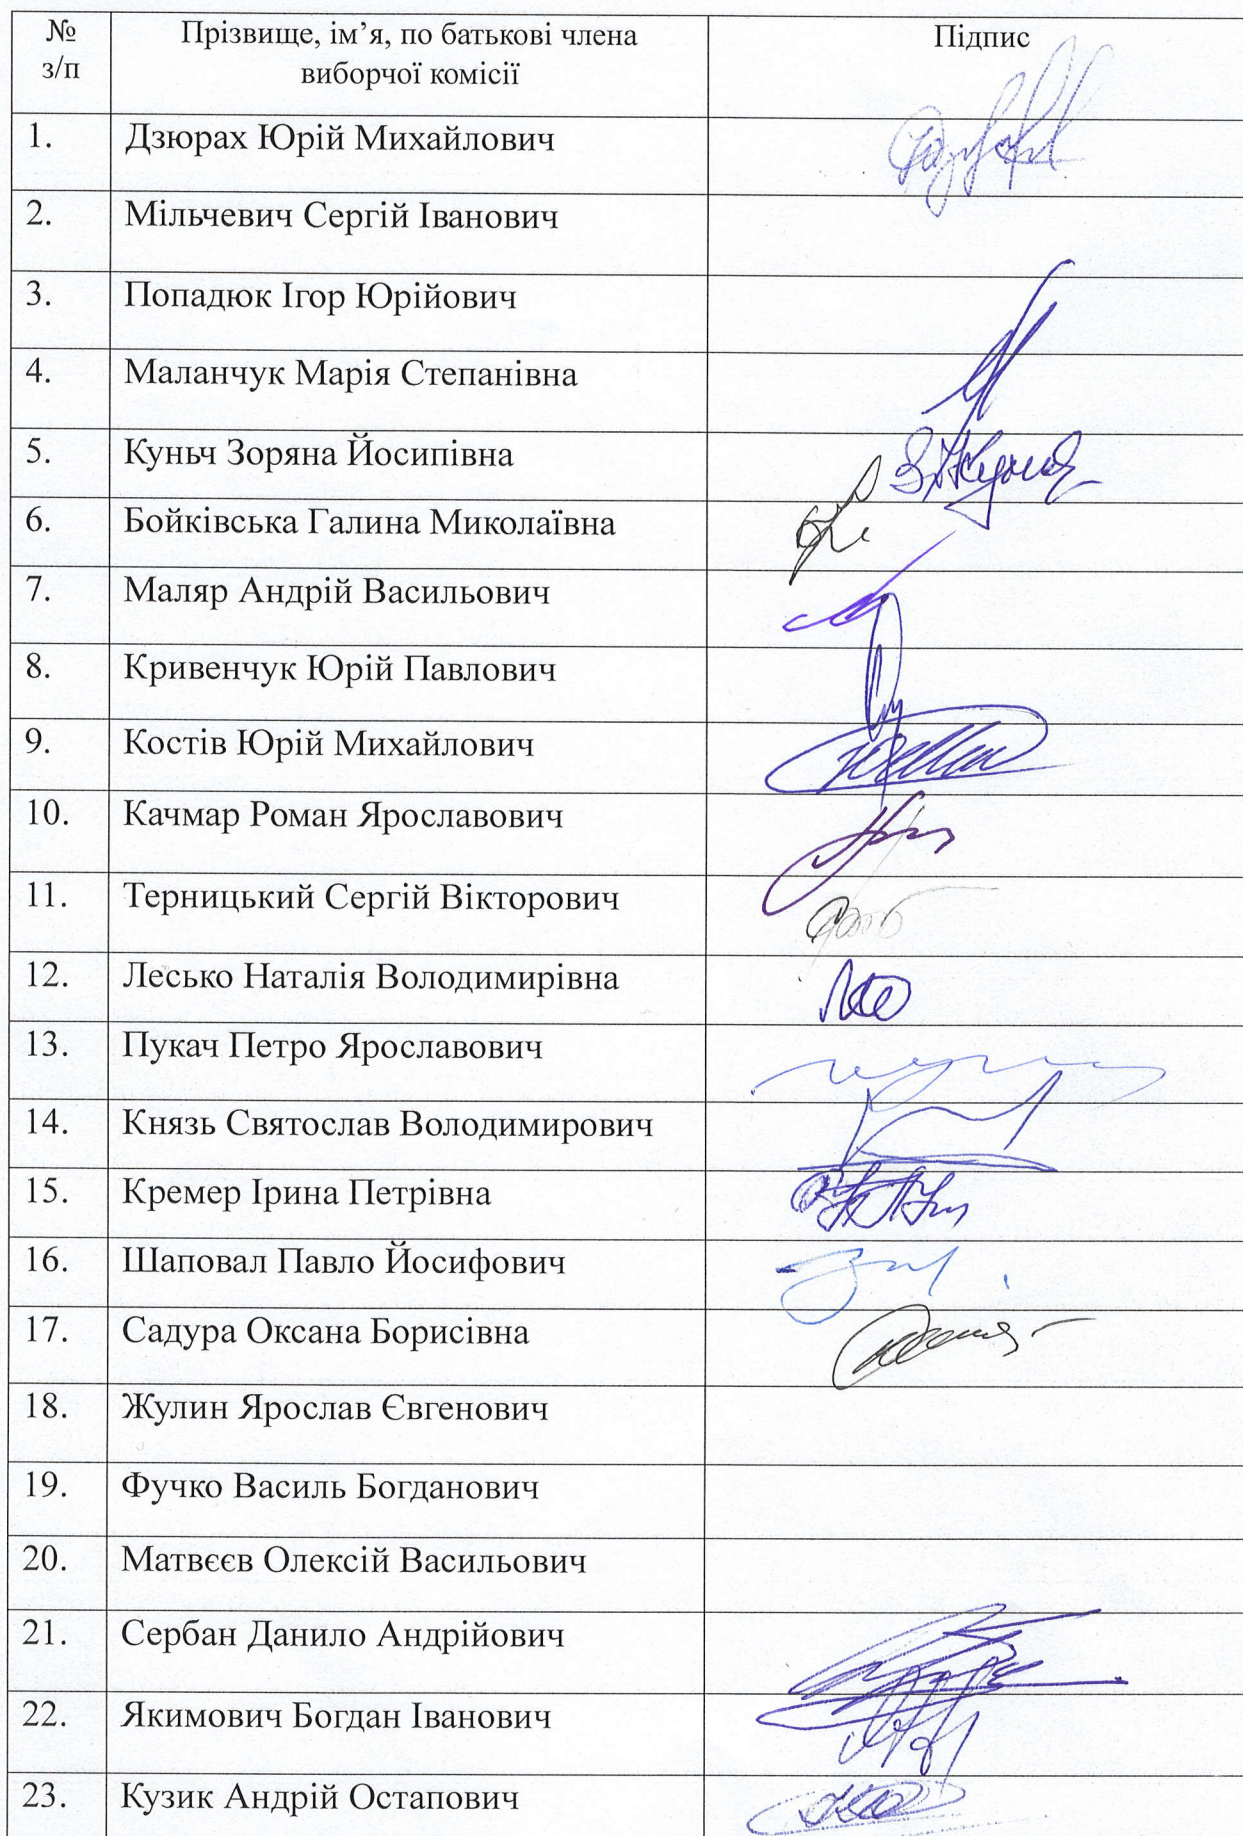 № з/п Прізвище, ім’я, по батькові члена виборчої комісії Підпис
1. Дзюрах Юрій Михайлович
2. Мільчевич Сергій Іванович
3. Попадюк Ігор Юрійович
4. Маланчук Марія Степанівна
5. Куньч Зоряна Йосипівна
6. Бойківська Галина Миколаївна
7. Маляр Андрій Васильович
8. Кривенчук Юрій Павлович
9. Костів Юрій Михайлович
10. Качмар Роман Ярославович
11. Терницький Сергій Вікторович
12. Лесько Наталія Володимирівна
13. Пукач Петро Ярославович
14. Князь Святослав Володимирович
15. Кремер Ірина Петрівна
16. Шаповал Павло Йосифович
17. Садура Оксана Борисівна
18. Жулин Ярослав Євгенович
19. Фучко Василь Богданович
20. Матвєєв Олексій Васильович
21. Сербан Данило Андрійович
22. Якимович Богдан Іванович
23. Кузик Андрій Остапович